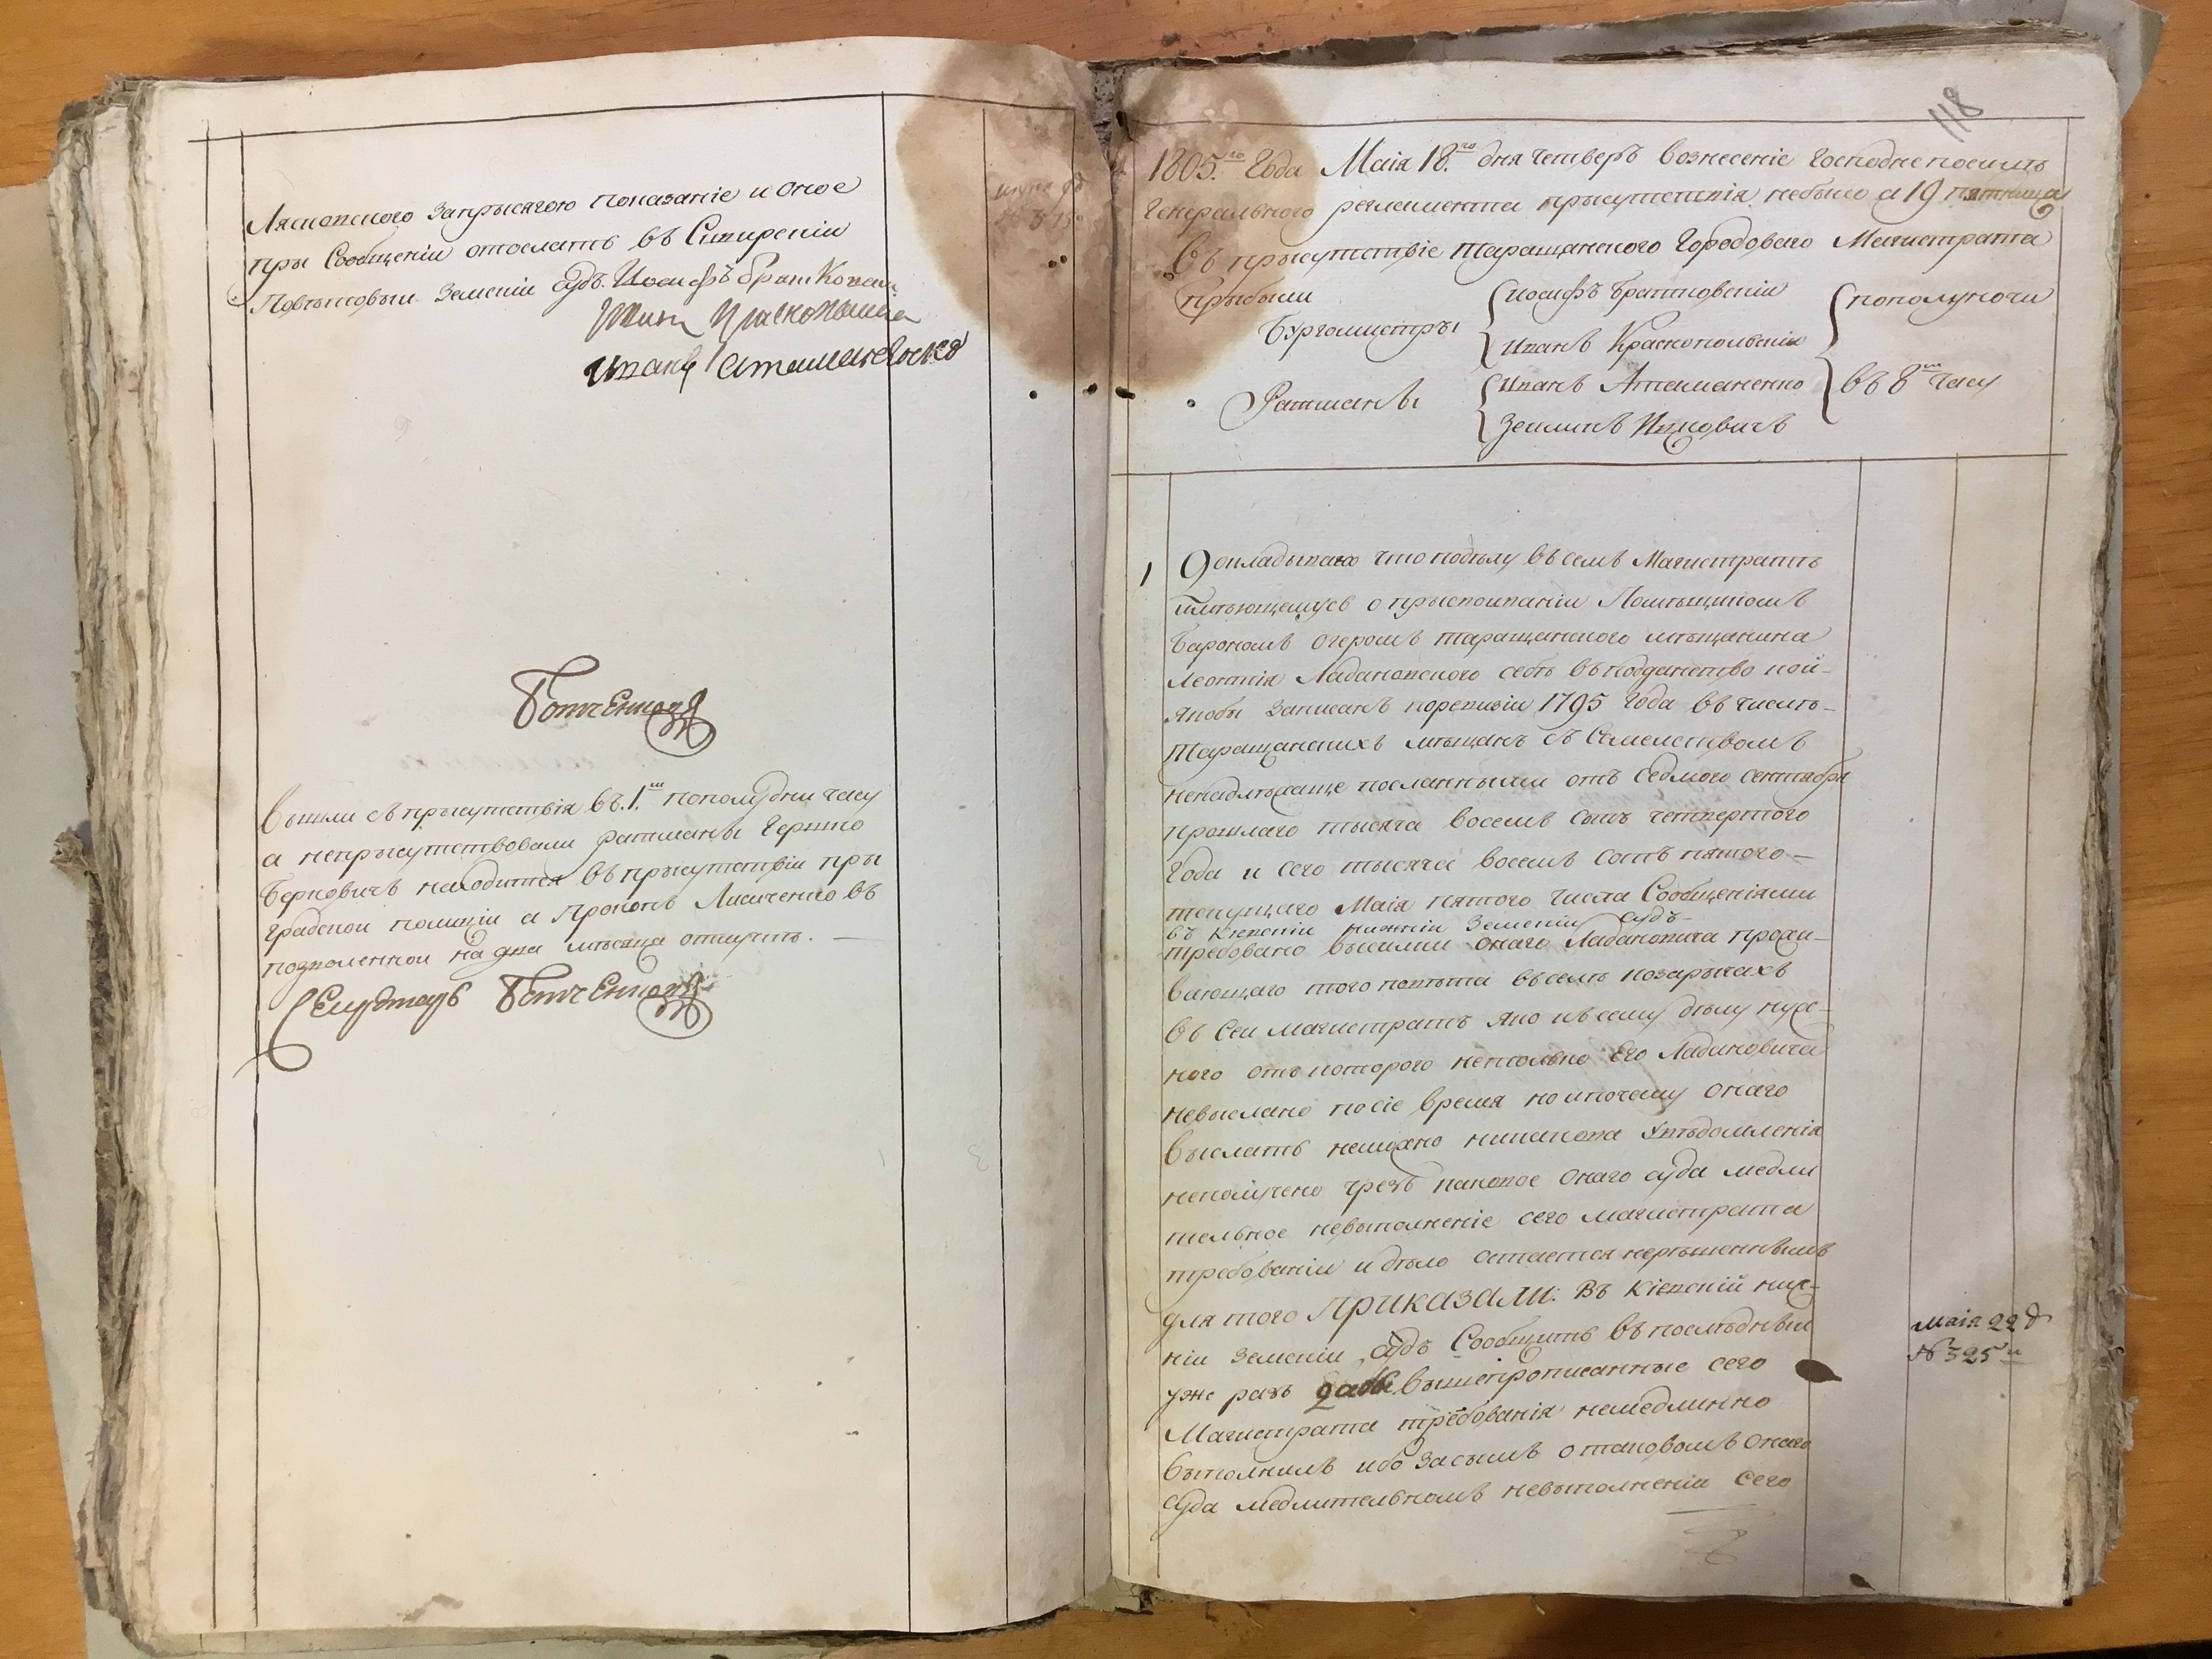 Лясковского запрысягою показаніе и оное
пры Сообщеніи отослать въ Сквирскіи
Повѣтовыи земскіи судъ. Иосифъ Братковски
Иванъ Краскопольски
Иванъ Атаманенко
Вышли съ прысутствія въ 1.м пополудни часу
а неприсутствовали ратманы Гершко
Берковичъ находится въ прысутствіи пры
градской полиціи а Прокопъ Лисиченко въ
позволенной на два мѣсяца отлучкѣ. —
Секретарь
118
1805.го Года Маія 18.го дня четверъ вознесеніе господне посилѣ
генерального регламента прысутствія небыло а 19 пятница
Въ прысутствіе таращанского Городоваго Магистрата
прыбыли
Бургомистры
Иосифъ Братковскіи
Иванъ Краскопольскіи
пополуночи
Ратманы
Иванъ Атаманенко
Зейликъ Ицковичъ
въ 8м часу
1
Докладывано что подѣлу въ семъ Магистратѣ
имѣющемусь о прысвоиваніи Помѣщикомъ
Барономъ таращанского мѣщанина
Леонтія Ладановского себѣ въ подданство кой-
якобы записанъ поревизіи 1795 года въ числѣ-
таращанскихъ мѣщанъ съ Семействомъ
посланными отъ Седмого сентября
прошлаго тысяча восемъ сотъ четвертого
Года и сего тысяча восемъ сотъ пятого —
текущаго Маія пятого числа Сообщеніями
въ Кіевскіи Нижніи Земскіи судъ-
требовано высилки онаго Ладановича прожи-
вающаго того повѣта въ селѣ
въ Сеи магистратъ яко къ сему дѣлу нуж-
ного отъ которого нетолько Его Ладановича
невыслано посіе время но ипочему онаго
выслать неможно никакова Увѣдомленія
неполучено чрезъ каковое онаго суда медли
тельное невыполненіе сего магистрата
требованіи и дѣло остается нерѣшеннымъ
для того Приказали: Въ Кіевскій ниж-
ніи земскіи судъ Сообщить въ послѣдныи
уже разъ дабы вышепрописанные сего
Магистрата требованія немедлинно
выполнилъ ибо засымъ о таковомъ онаго
суда медлительномъ невыполненіи сего
Маія 22 д
№ 325